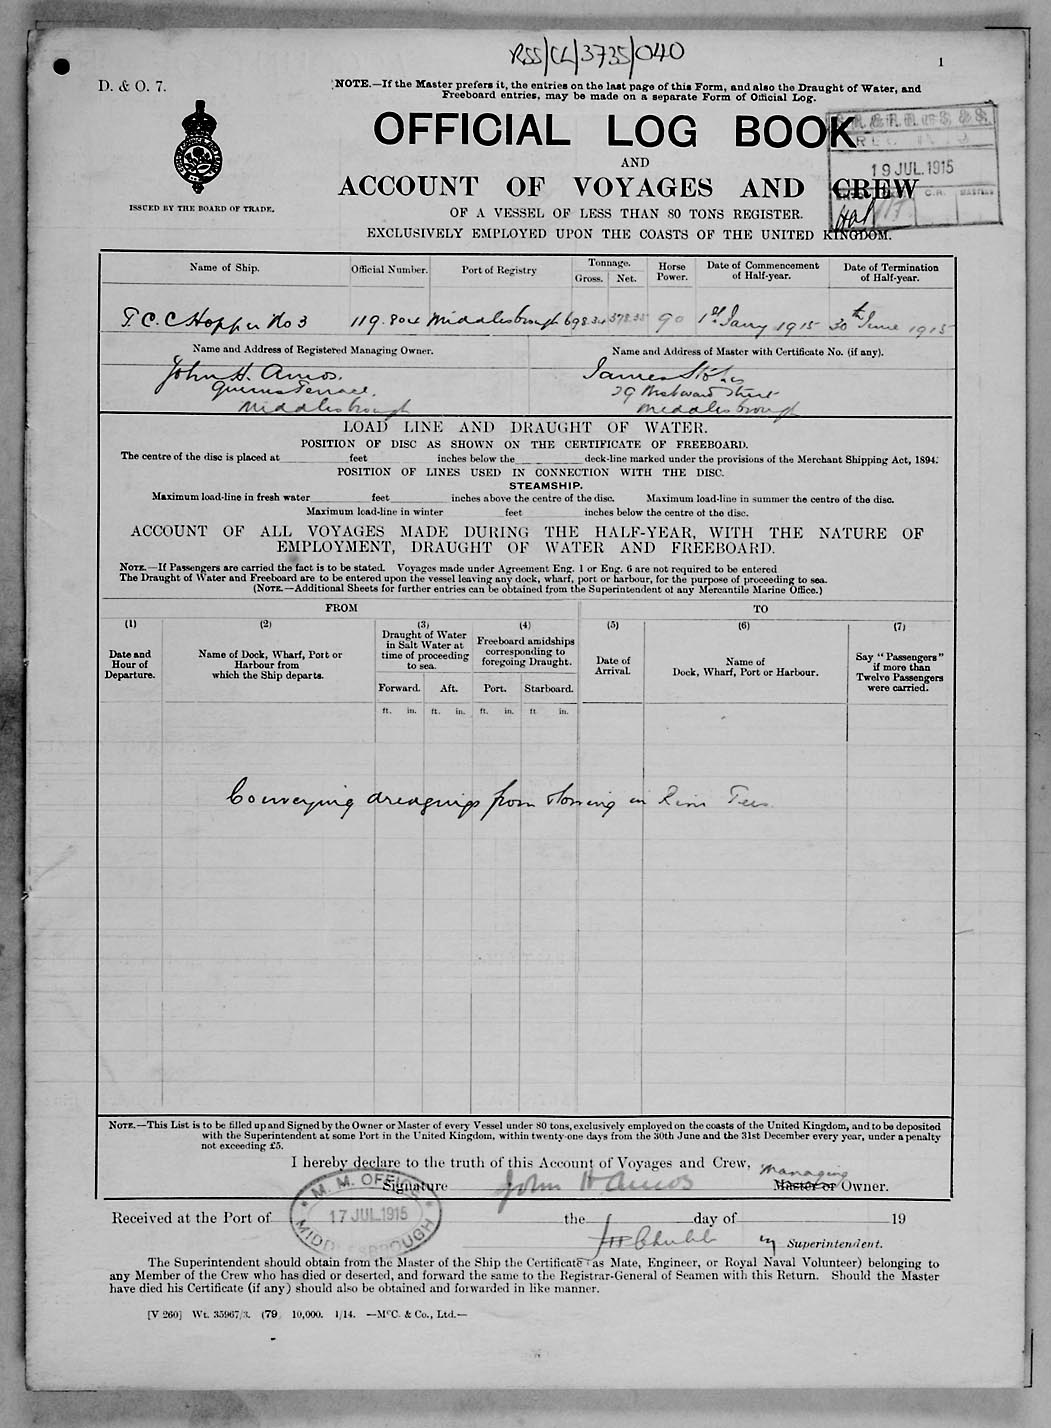 RSS/CL/3735/040
1
D. & O. 7.
NOTE.—If the Master prefers it, the entries on the last page of this Form, and also the Draught of Water, and
Freeboard entries, may be made on a separate Form of Official Log.
OFFICIAL LOG BOOK
AND
ACCOUNT OF VOYAGES AND CREW
OF A VESSEL OF LESS THAN 80 TONS REGISTER.
EXCLUSIVELY EMPLOYED UPON THE COASTS OF THE UNITED KINGDOM.
ISSUED BY THE BOARD OF TRADE.
19 JUL. 1915
C.R.
Name of Ship. Official Number. Port of Registry Tonnage. Gross. Net. Horse Power. Date of Commencement of Half-year. Date of Termination of Half-year.
T.C.C Hopper No 3 119.804 Middlesbrough 698.34 378.35 90 1st Jany 1915 30th June 1915
Name and Address of Registered Managing Owner. Name and Address of Master with Certificate No. (if any).
John H. Amos. James Stokes
Queens Terrace. 39 Street
Middlesbrough Middlesbrough
LOAD LINE AND DRAUGHT OF WATER.
POSITION OF DISC AS SHOWN ON THE CERTIFICATE OF FREEBOARD.
The centre of the disc is placed at feet inches below the deck-line marked under the provisions of the Merchant Shipping Act, 1894.
POSITION OF LINES USED IN CONNECTION WITH THE DISC.
STEAMSHIP.
Maximum load-line in fresh water feet inches above the centre of the disc. Maximum load-line in summer the centre of the disc.
Maximum load-line in winter feet inches below the centre of the disc.
ACCOUNT OF ALL VOYAGES MADE DURING THE HALF-YEAR, WITH THE NATURE OF
EMPLOYMENT, DRAUGHT OF WATER AND FREEBOARD.
NOTE.—If Passengers are carried the fact is to be stated. Voyages made under Agreement Eng. 1 or Eng. 6 are not required to be entered
The Draught of Water and Freeboard are to be entered upon the vessel leaving any dock, wharf, port or harbour, for the purpose of proceeding to sea.
(NOTE.—Additional Sheets for further entries can be obtained from the Superintendent of any Mercantile Marine Office.)
FROM TO
(1) (2) (3) (4) (5) (6) (7)
Date and Hour of Departure.
Name of Dock, Wharf, Port or Harbour from which the Ship departs.
Draught of Water in Salt Water at time of proceeding to sea.
Freeboard amidships corresponding to foregoing Draught.
Date of Arrival.
Name of Dock, Wharf, Port or Harbour.
Say "Passengers" if more than Twelve Passengers were carried.
Forward. Aft. Port. Starboard.
ft. in. ft. in. ft. in. ft in.
Conveying dredgings from in River Tees
NOTE.—This List is to be filled up and Signed by the Owner or Master of every Vessel under 80 tons, exclusively employed on the coasts of the United Kingdom, and to be deposited
with the Superintendent at some Port in the United Kingdom, within twenty-one days from the 30th June and the 31st December every year, under a penalty
not exceeding £5.
I hereby declare to the truth of this Account of Voyages and Crew,
Managing
Signature John H Amos Master or Owner.
M. M. OFFICE
17 JUL.1915
MIDDLESBROUGH
Received at the Port of the day of 19
Superintendent.
The Superintendent should obtain from the Master of the Ship the Certificate (as Mate, Engineer, or Royal Naval Volunteer) belonging to
any Member of the Crew who has died or deserted, and forward the same to the Registrar-General of Seamen with this Return. Should the Master
have died his Certificate (if any) should also be obtained and forwarded in like manner.
[V 260] Wt. 35967/3. (79 10,000. 1/14. —McC. & Co., Ltd.—